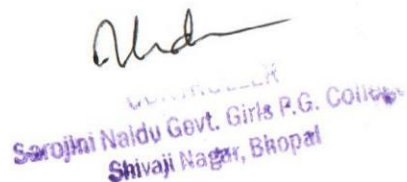 CONTROLLER
Sarojini Naidu Govt. Girls P.G. College
Shivaji Nagar, Bhopal